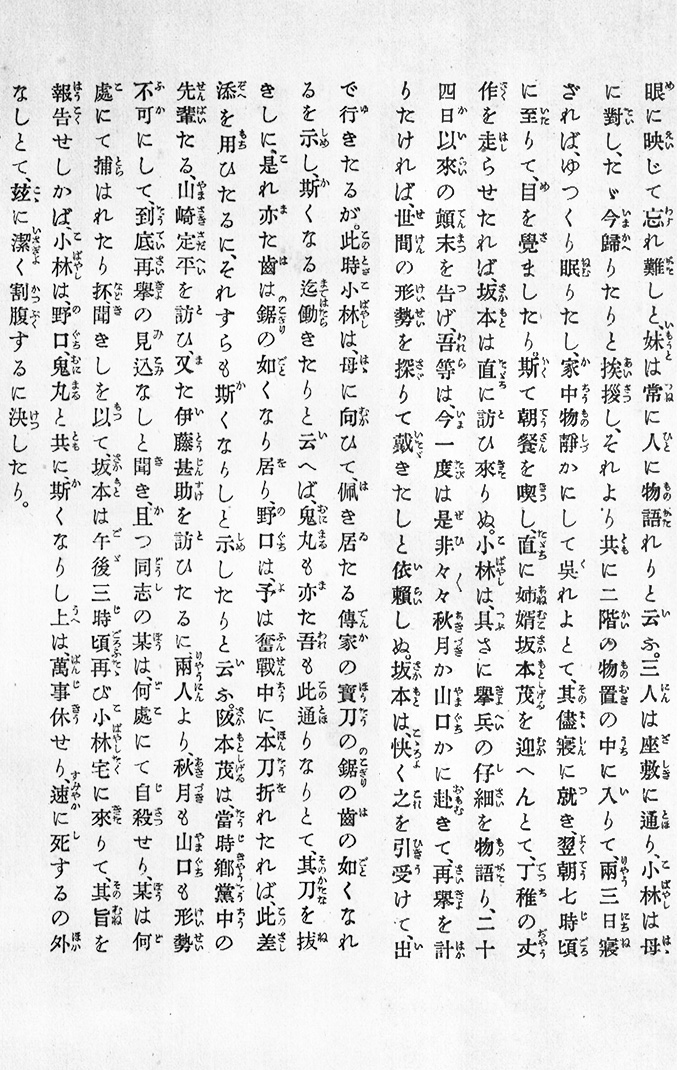 眼に映じて忘れ難しと、妹は常に人に物語れりと云ふ。三人は座敷に通り、小林は母
に對し、たゞ今歸りたりと挨拶し、それより共に二階の物置の中に入りて、兩三日寢
ざれば、ゆつくり眠りたし、家中物靜かにして呉れよとて、其儘寢に就き、翌朝七時頃
に至りて、目を覺ましたり。斯て朝餐を喫し、直に姉婿坂本茂を迎へんとて、丁稚の丈
作を走らせたれば、坂本は直に訪ひ來りぬ。小林は、具さに擧兵の仔細を物語り、二十
四日以來の顚末を告げ、吾等は、今一度は是非々々秋月か山口かに赴きて、再擧を計
りたければ、世間の形勢を探りて戴きたしと依賴しぬ。坂本は、快く之を引受けて、出
で行きたるが。此時小林は、母に向ひて、佩き居たる傳家の寶刀の鋸の齒の如くなれ
るを示し、斯くなる迄働きたりと云へば、鬼丸も亦た吾も此通りなりとて、其刀を拔
きしに、是れ亦た齒は鋸の如くなり居り、野口は、予は奮戰中に、本刀折れたれば、此差
添を用ひたるに、それすらも斯くなりしと示したりと云ふ。阪本茂は、當時鄕黨中の
先輩たる、山崎定平を訪ひ、又た伊藤甚助を訪ひたるに兩人より、秋月も山口も形勢
不可にして、到底再擧の見込なしと聞き、且つ同志の某は、何處にて自殺せり、某は何
處にて捕はれたり抔聞きしを以て、坂本は午後三時頃再び小林宅に來りて、其旨を
報告せしかば、小林は、野口、鬼丸と共に、斯くなりし上は、萬事休せり、速に死するの外
なしとて、玆に潔く割腹するに決したり。